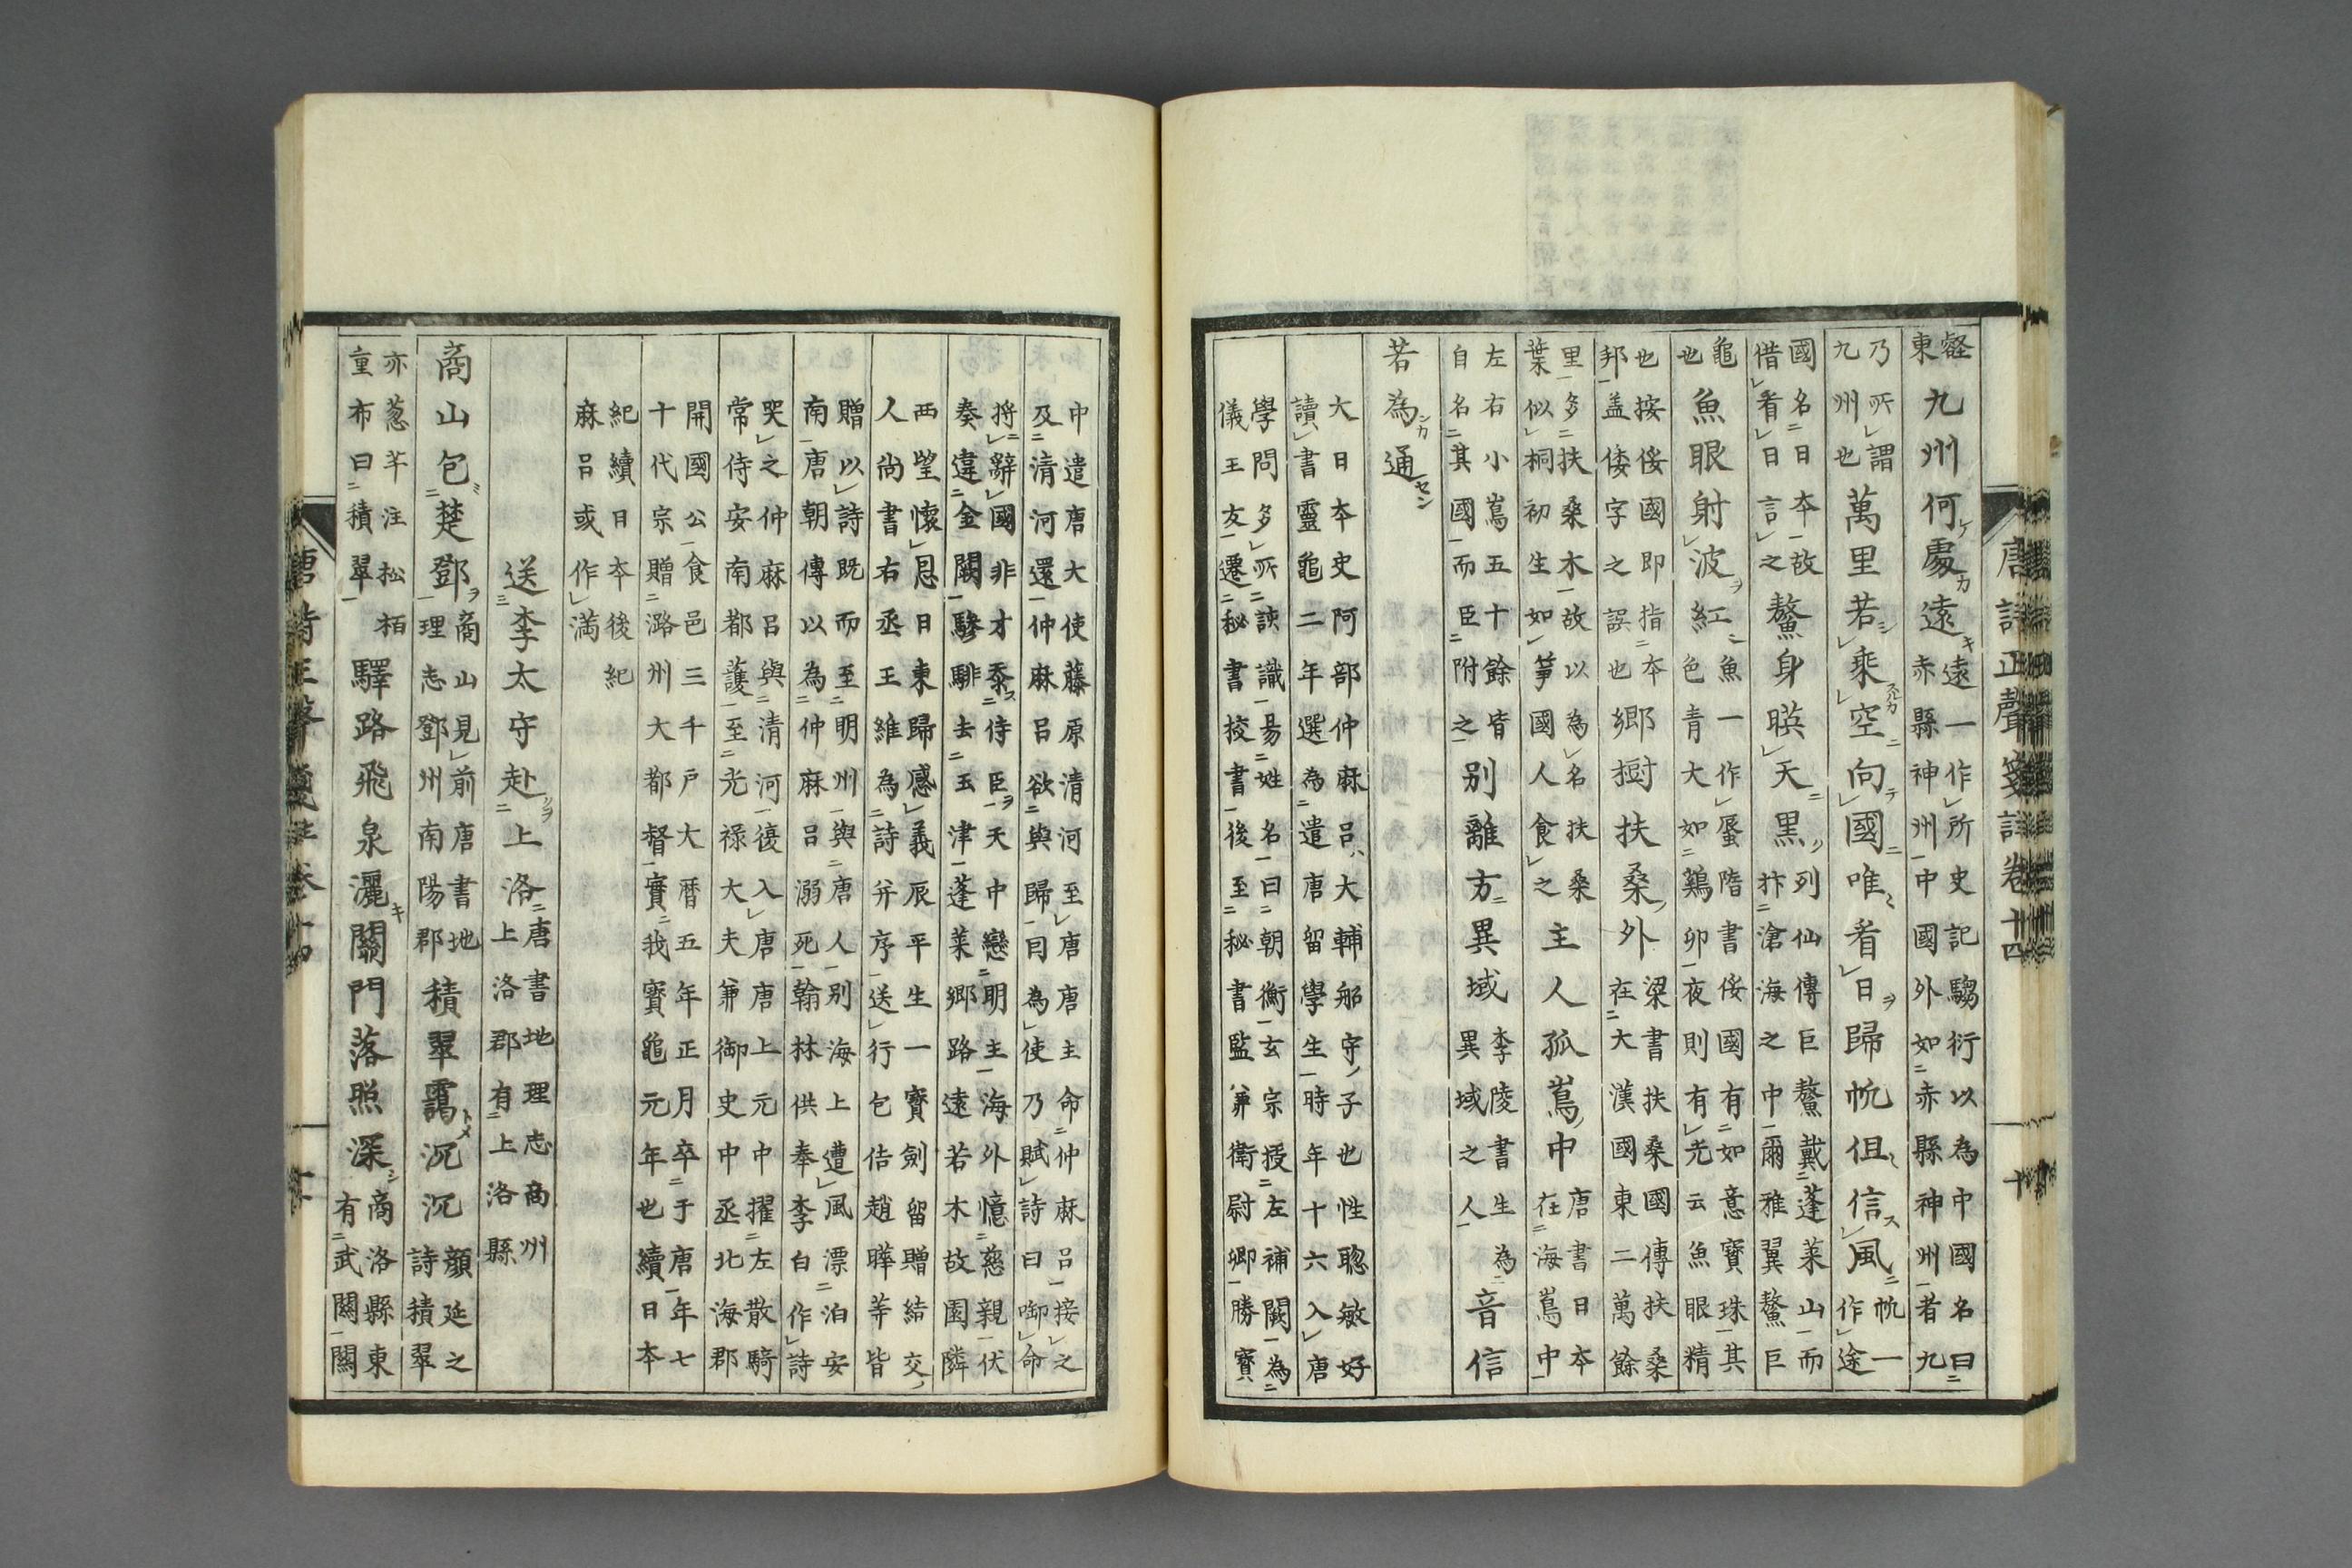 壑東九州何處遠遠一作所史記騶衍以為中國名曰赤縣神州中國外如赤縣神州者九
乃所謂九州也萬里若乘空向國唯看日歸帆但信風帆一作途
國名日夲故借看日言之鰲身暎天黒列仙傳巨鰲戴蓬莱山而抃滄海之中爾雅翼鰲巨
龜也魚眼射波紅魚一作蜃隋書倭國有如意寳珠其色青大如鷄卵夜則有光云魚眼精
也按倭國即指夲邦盖倭字之誤也鄉樹扶桑外梁書扶桑國傳扶桑在大漢國東二萬餘
里多扶桑木故以為名扶桑葉似桐初生如筍國人食之主人孤嶌中唐書日夲在海嶌中
左右小嶌五十餘皆自名其國而臣附之别離方異域李陵書生為異域之人音信
若為通
大日夲史阿部仲麻呂大輔舩守子也性聡敏好
讀書靈龜二年選為遣唐留學生時年十六入唐
學問多所諌識易姓名曰朝衡玄宗授左補闕為
儀王友遷秘書挍書後至秘書監兼衛尉卿勝寳
唐詩正聲箋註卷十四 十
中遣唐大使藤原清河至唐唐主命仲麻呂接之
及清河還仲麻呂欲與歸目為使乃賦詩曰啣命
将辭國非才忝侍臣天中戀明主海外憶慈親伏
奏違金闕驂騑去玉津蓬莱郷路遠若木故園隣
西望懷恩日東歸感義辰平生一寳劍留贈結交
人尚書右丞王維為詩并序送行包佶趙驊等皆
贈以詩既而至明州與唐人别海上遭風漂泊安
南唐朝傳以為仲麻呂溺死翰林供奉李白作詩
哭之仲麻呂與清河復入唐唐上元中擢左散騎
常侍安南都護至光禄大夫兼御史中丞北海郡
開國公食邑三千戸大暦五年正月卒于唐年七
十代宗贈潞州大都督實我寳龜元年也續日夲
紀續日夲後紀
麻呂或作満
送李太守赴上洛唐書地理志商州上洛郡有上洛縣
商山包楚鄧商山見前唐書地理志鄧州南陽郡積翠靄沉沉顔延之詩積翠
亦葱芊注松栢重布曰積翠驛路飛泉灑關門落照深商洛縣東有武關關